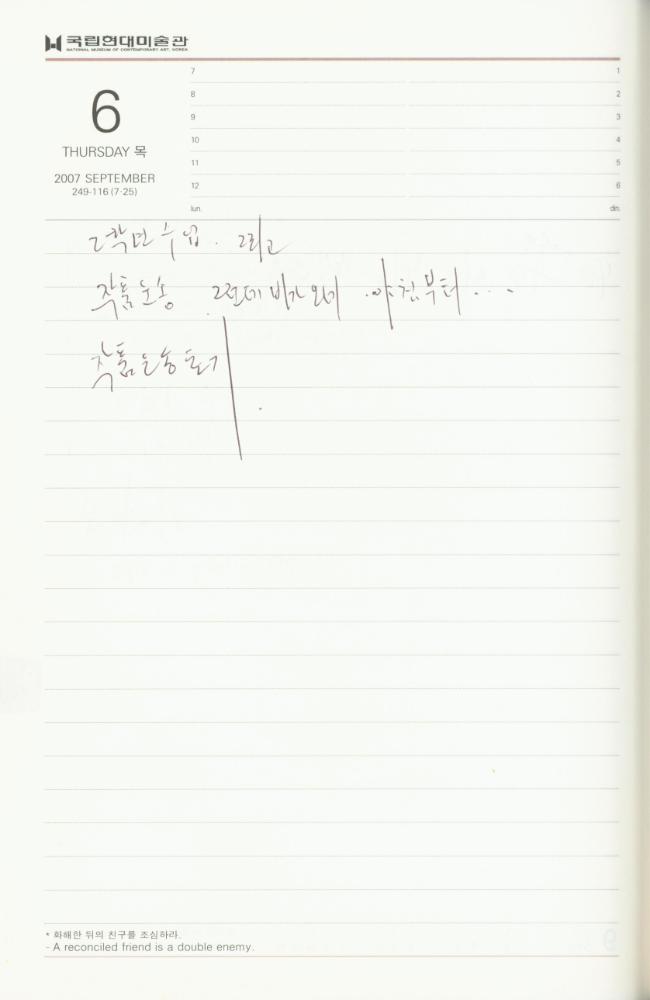 국립현대미술관
NATIONAL MUSEUM OF CONTEMPORARY ART, KOREA
6
THURSDAY 목
2007 SEPTEMBER
249-116 (7·25)
7 1
8 2
9 3
10 4
11 5
12 6
lun. din.
2학년 수업. 그리고
작품운송 그런데 비가 오네 아침부터...
작품운송
* 화해한 뒤의 친구를 조심하라.
- A reconciled friend is a double enemy.